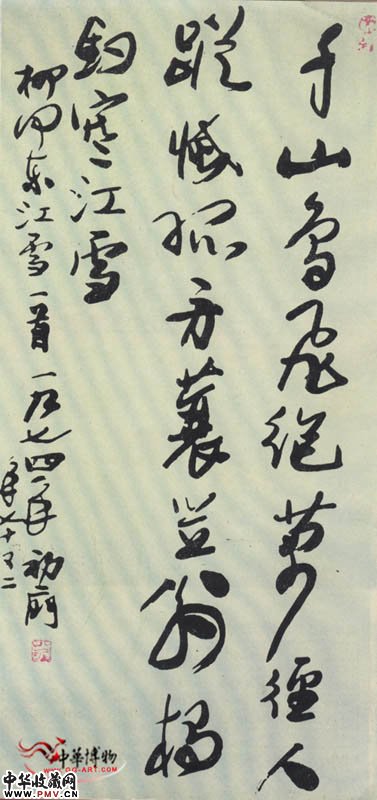 千山鳥飛絕萬徑人
蹤滅孤舟蓑笠翁獨
釣寒江雪
柳河东江雪一首一九七四年初
年七十又二
中華博物
www.GG-ART.com
中华收藏网
WWW.PMV.CN